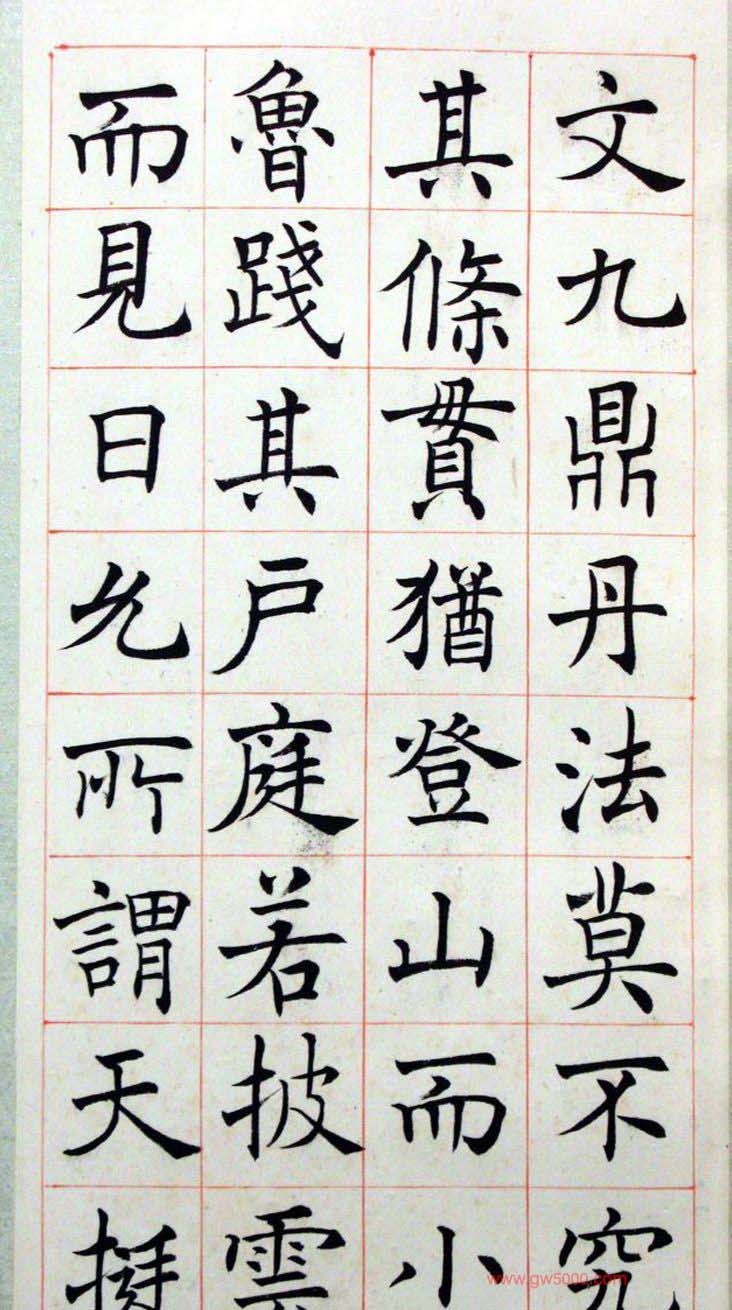 文九鼎丹法莫不究
其條貫猶登山而小
魯踐其戶庭若披雲
而見日允所謂天挺
www.gw5000.com